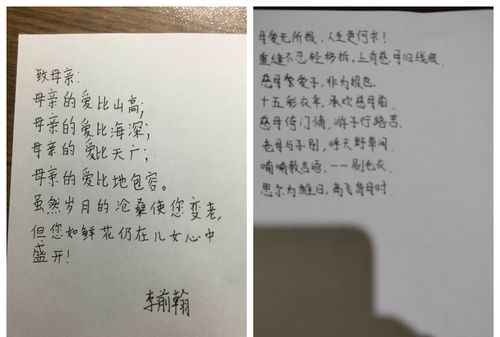 致母亲:
母亲的爱比山高;
母亲的爱比海深;
母亲的爱比天广;
母亲的爱比地包容。
虽然岁月的沧桑使您变老,
但您如鲜花仍在儿女心中
盛开!
李前翰
母爱无所报,人生更何求!
重缝不忍轻移拆,上有慈母旧线痕.
慈母爱爱子,非为报也.
十五彩衣年,承欢慈母前.
慈母倚门情,游子行路苦.
老母与子别,呼天野草间.
喃喃教言语,一一刷毛衣.
思尔为雏日,高飞背母时.